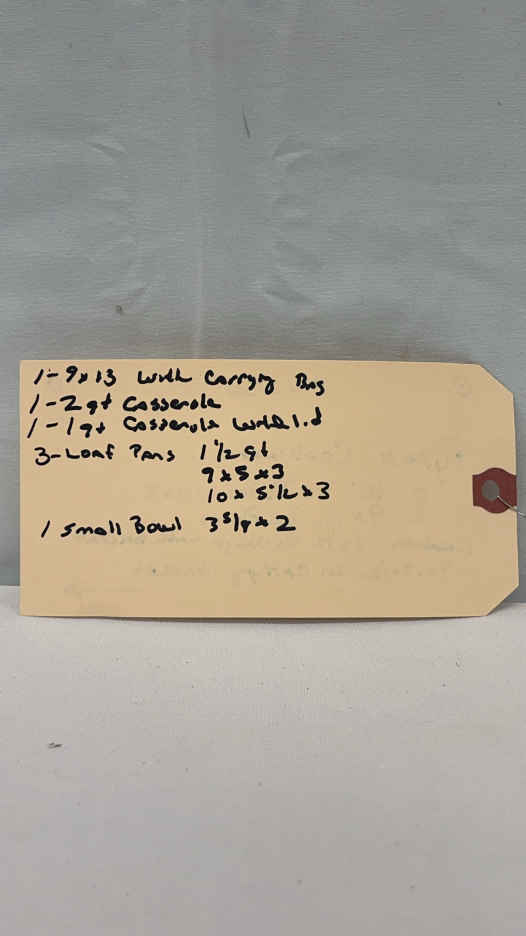 1-9x13 with Carrying Bag
1-2qt Casserole
1-1qt Casserole with lid
3-Loaf Pans 1 1/2 qt
9x5x3
10x5 1/2x3
1 small Bowl 3 5/8x2